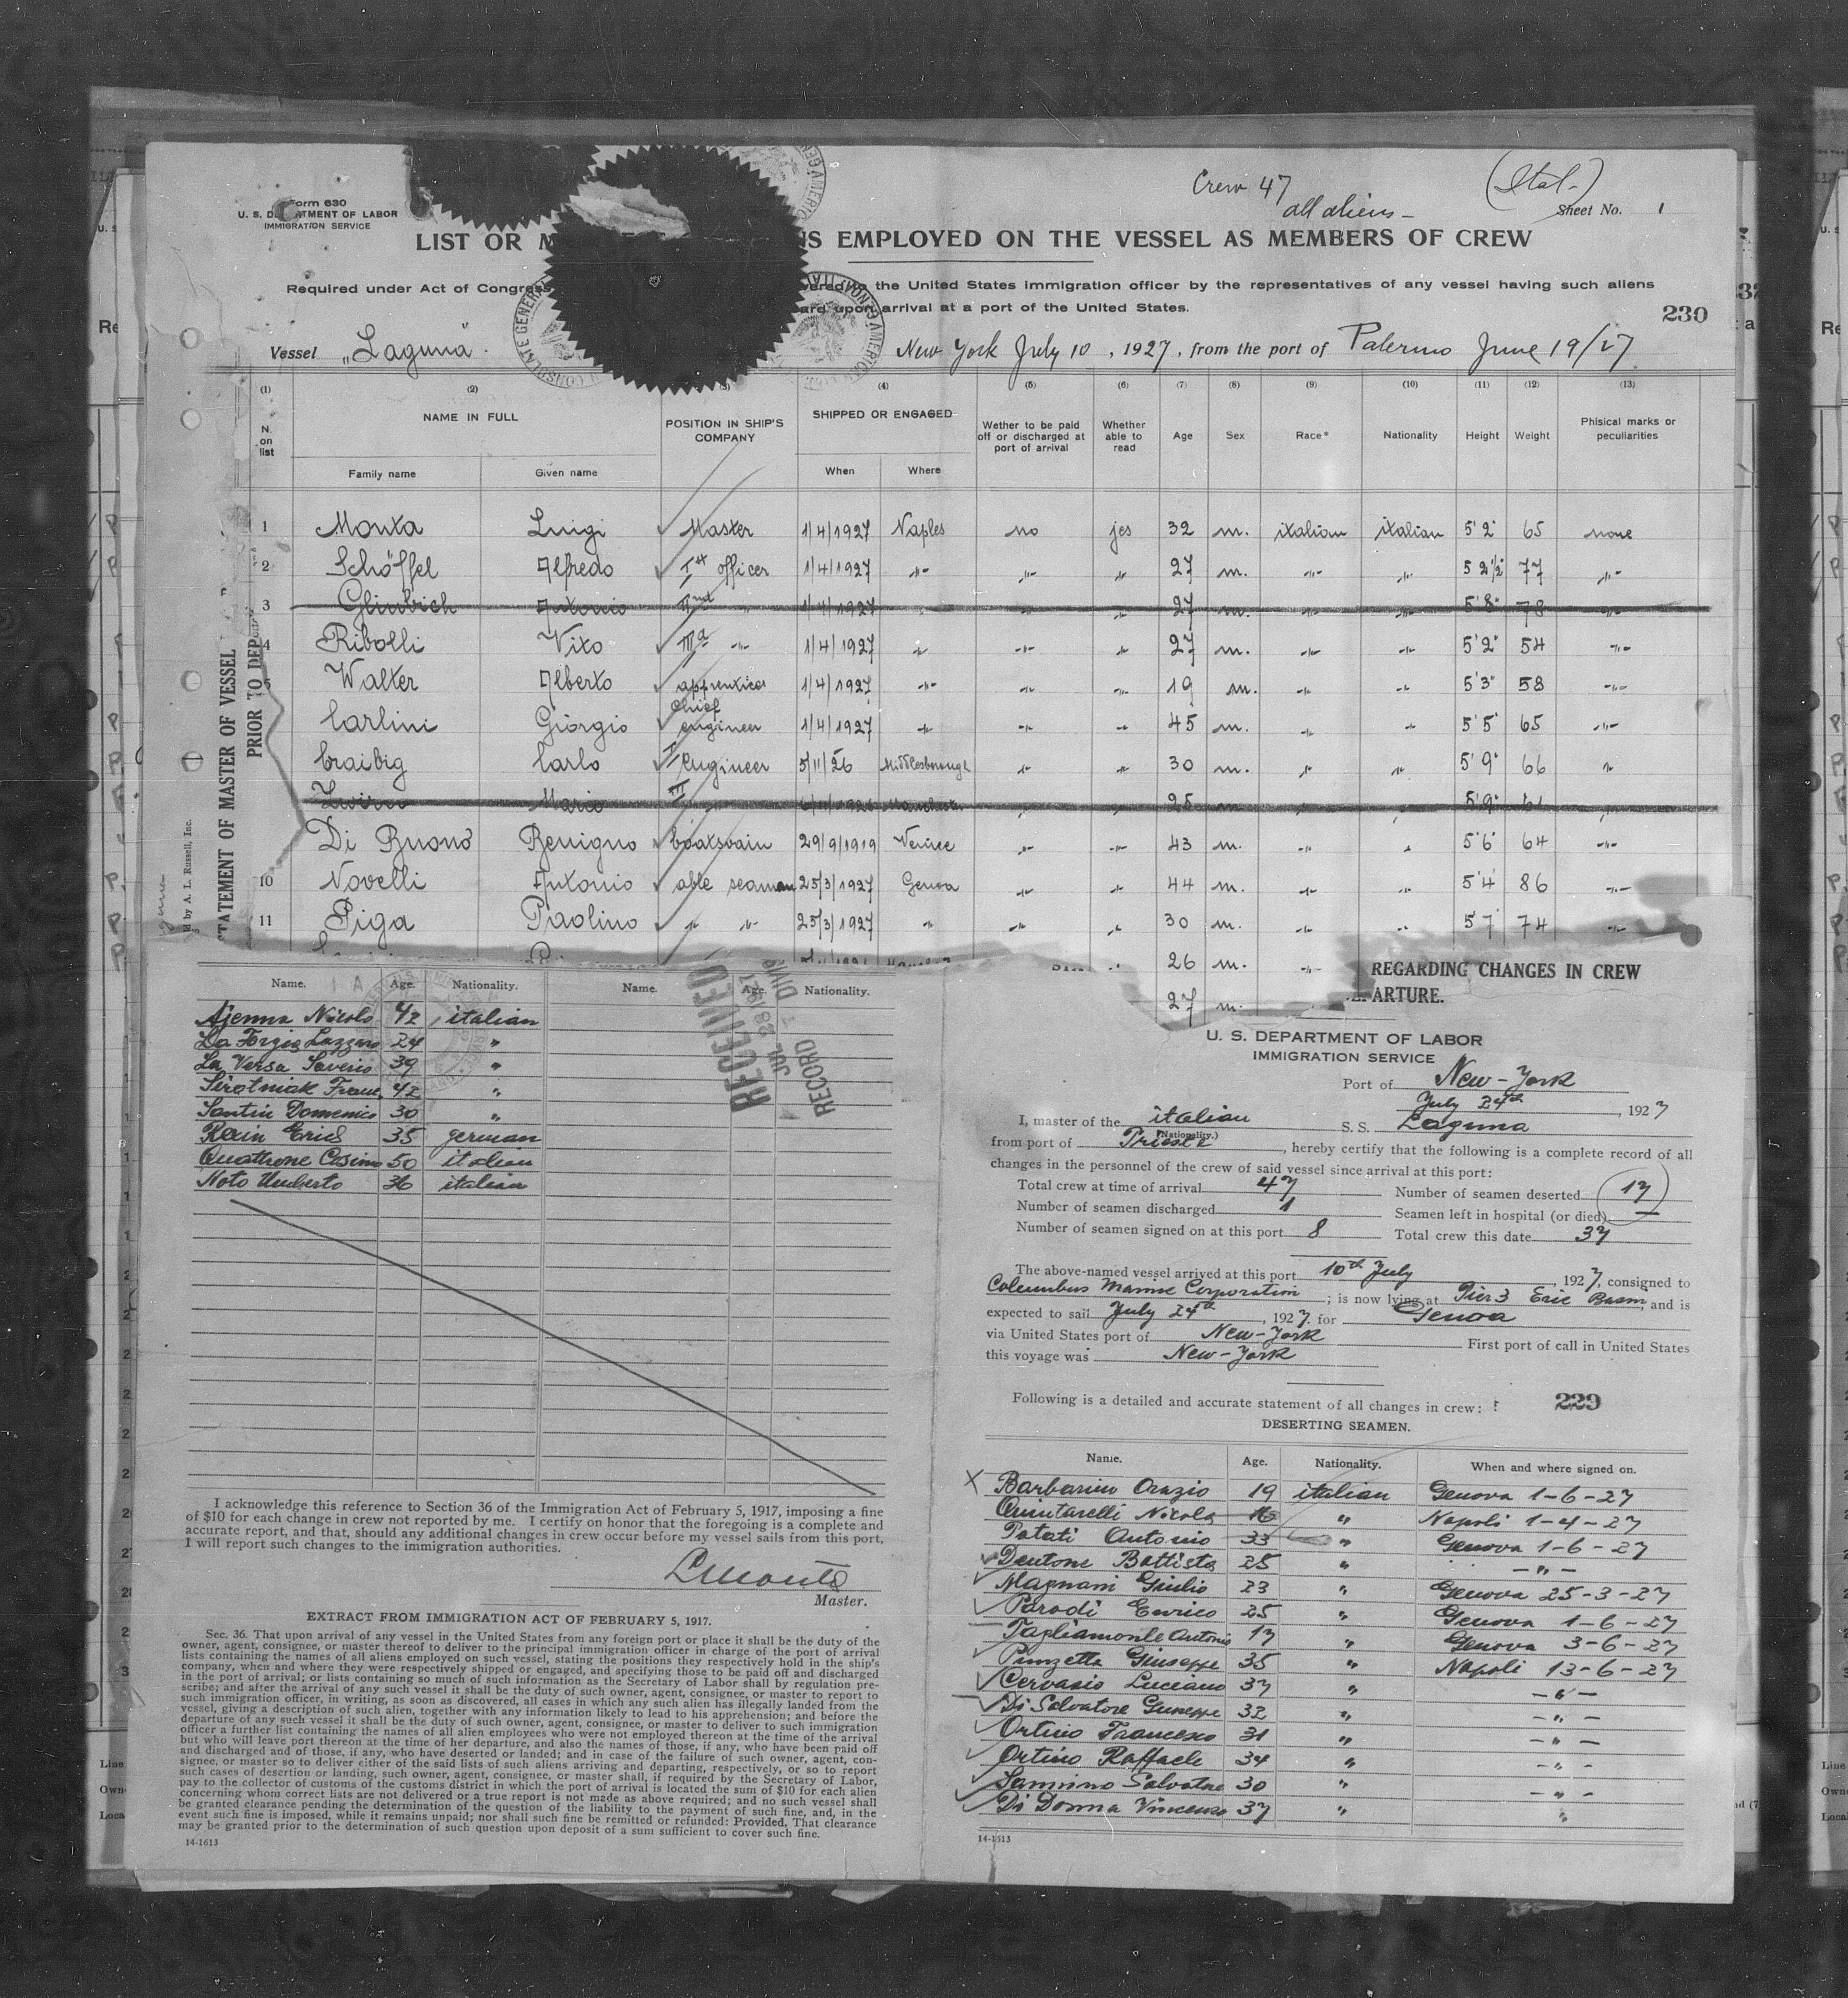 Crew 47
all aliens -
(Ital-)
Form 630
U. S. DEPARTMENT OF LABOR
IMMIGRATION SERVICE
Sheet No. 1
LIST OR M NS EMPLOYED ON THE VESSEL AS MEMBERS OF CREW
Required under Act of Congress the United States immigration officer by the representatives of any vessel having such aliens
upon arrival at a port of the United States.
230
Vessel „Laguna" New York July 10, 1927, from the port of Palermo June 19/27
(1) (2) (3) (4) (5) (6) (7) (8) (9) (10) (11) (12) (13)
N. on list NAME IN FULL POSITION IN SHIP'S COMPANY SHIPPED OR ENGAGED Wether to be paid off or discharged at port of arrival Whether able to read Age Sex Race* Nationality Height Weight Phisical marks or peculiarities
Family name Given name When Where
1 Monta Luigi Master 1/4/1927 Naples no jes 32 m. italian italian 5'2" 65 none
2 Schöffel Alfredo Ist officer 1/4/1927 -"- -"- -"- 27 m. -"- -"- 5 2½" 77 -"-
3 Antonio IInd " 1/4/1927 27 m. 5'8" 78 -"-
4 Ribolli Vito IIId -"- 1/4/1927 -"- -"- -"- 27 m. -"- -"- 5'2" 54 -"-
5 Walter Alberto apprentice 1/4/1927 -"- -"- -"- 19 m. -"- -"- 5'3" 58 -"-
Carlini Giorgio chief engineer 1/4/1927 -"- -"- -"- 45 m. -"- -"- 5'5" 65 -"-
Craibig Carlo I engineer 5/11/26 Middlesborough -"- -"- 30 m. -"- -"- 5'9" 66 "
Mario III " 28 m 5'9" 61 "
Di Buono Benigno boatswain 29/9/1919 Venice -"- -"- 43 m. -"- " 5'6" 64 -"-
10 Novelli Antonio able seaman 25/3/1927 Genoa -"- -"- 44 m. -"- -"- 5'4" 86 -"-
11 Piga Paolino -"- -"- 25/3/1927 -"- -"- -"- 30 m. -"- -"- 5'7" 74 -"-
26 m. -"-
27 m.
STATEMENT OF MASTER OF VESSEL
PRIOR TO DEP
by A. L. Russell, Inc.
REGARDING CHANGES IN CREW
PARTURE.
Name. Age. Nationality. Name. Age. Nationality.
Ajenna Nicolo 42 italian
La Forgia Lazzaro 24 "
La Versa Saverio 39 "
Sirotniak Franc. 42 "
Santin Domenico 30 "
Rein Erich 35 german
Quattrone Cosimo 50 italian
Noto Umberto 36 italian
RECEIVED
JUL 28 1927
RECORD DIV.
I acknowledge this reference to Section 36 of the Immigration Act of February 5, 1917, imposing a fine
of $10 for each change in crew not reported by me. I certify on honor that the foregoing is a complete and
accurate report, and that, should any additional changes in crew occur before my vessel sails from this port,
I will report such changes to the immigration authorities.
LMonta
Master.
EXTRACT FROM IMMIGRATION ACT OF FEBRUARY 5, 1917.
Sec. 36. That upon arrival of any vessel in the United States from any foreign port or place it shall be the duty of the
owner, agent, consignee, or master thereof to deliver to the principal immigration officer in charge of the port of arrival
lists containing the names of all aliens employed on such vessel, stating the positions they respectively hold in the ship's
company, when and where they were respectively shipped or engaged, and specifying those to be paid off and discharged
in the port of arrival; or lists containing so much of such information as the Secretary of Labor shall by regulation pre-
scribe; and after the arrival of any such vessel it shall be the duty of such owner, agent, consignee, or master to report to
such immigration officer, in writing, as soon as discovered, all cases in which any such alien has illegally landed from the
vessel, giving a description of such alien, together with any information likely to lead to his apprehension; and before the
departure of any such vessel it shall be the duty of such owner, agent, consignee, or master to deliver to such immigration
officer a further list containing the names of all alien employees who were not employed thereon at the time of the arrival
but who will leave port thereon at the time of her departure, and also the names of those, if any, who have been paid off
and discharged and of those, if any, who have deserted or landed; and in case of the failure of such owner, agent, con-
signee, or master so to deliver either of the said lists of such aliens arriving and departing, respectively, or so to report
such cases of desertion or landing, such owner, agent, consignee, or master shall, if required by the Secretary of Labor,
pay to the collector of customs of the customs district in which the port of arrival is located the sum of $10 for each alien
concerning whom correct lists are not delivered or a true report is not made as above required; and no such vessel shall
be granted clearance pending the determination of the question of the liability to the payment of such fine, and, in the
event such fine is imposed, while it remains unpaid; nor shall such fine be remitted or refunded: Provided, That clearance
may be granted prior to the determination of such question upon deposit of a sum sufficient to cover such fine.
14-1613
U. S. DEPARTMENT OF LABOR
IMMIGRATION SERVICE
Port of New-York
July 24th, 1927
I, master of the italian S. S. Laguna
(Nationality.)
from port of Trieste, hereby certify that the following is a complete record of all
changes in the personnel of the crew of said vessel since arrival at this port:
Total crew at time of arrival 47 Number of seamen deserted 17
Number of seamen discharged 1 Seamen left in hospital (or died) —
Number of seamen signed on at this port 8 Total crew this date 37
The above-named vessel arrived at this port 10th July, 1927, consigned to
Columbus Marine Corporation; is now lying at Pier 3 Erie Basin, and is
expected to sail July 24th, 1927 for Genoa
via United States port of New-York First port of call in United States
this voyage was New-York
Following is a detailed and accurate statement of all changes in crew:
229
DESERTING SEAMEN.
Name. Age. Nationality. When and where signed on.
X Barbarino Orazio 19 italian Genova 1-6-27
Quintarelli Nicola 16 " Napoli 1-4-27
Potati Antonio 33 " Genova 1-6-27
Dentone Battista 25 " -"-
Magnani Giulio 23 " Genova 25-3-27
Parodi Enrico 25 " Genova 1-6-27
Tagliamonte Antonio 17 " Genova 3-6-27
Punzetta Giuseppe 35 " Napoli 13-6-27
Cervasio Luciano 37 " -"-
Di Salvatore Giuseppe 32 " -"-
Ortino Francesco 31 " -"-
Ortino Raffaele 34 " -"-
Sannino Salvatore 30 " -"-
Di Donna Vincenzo 37 " "
14-1613